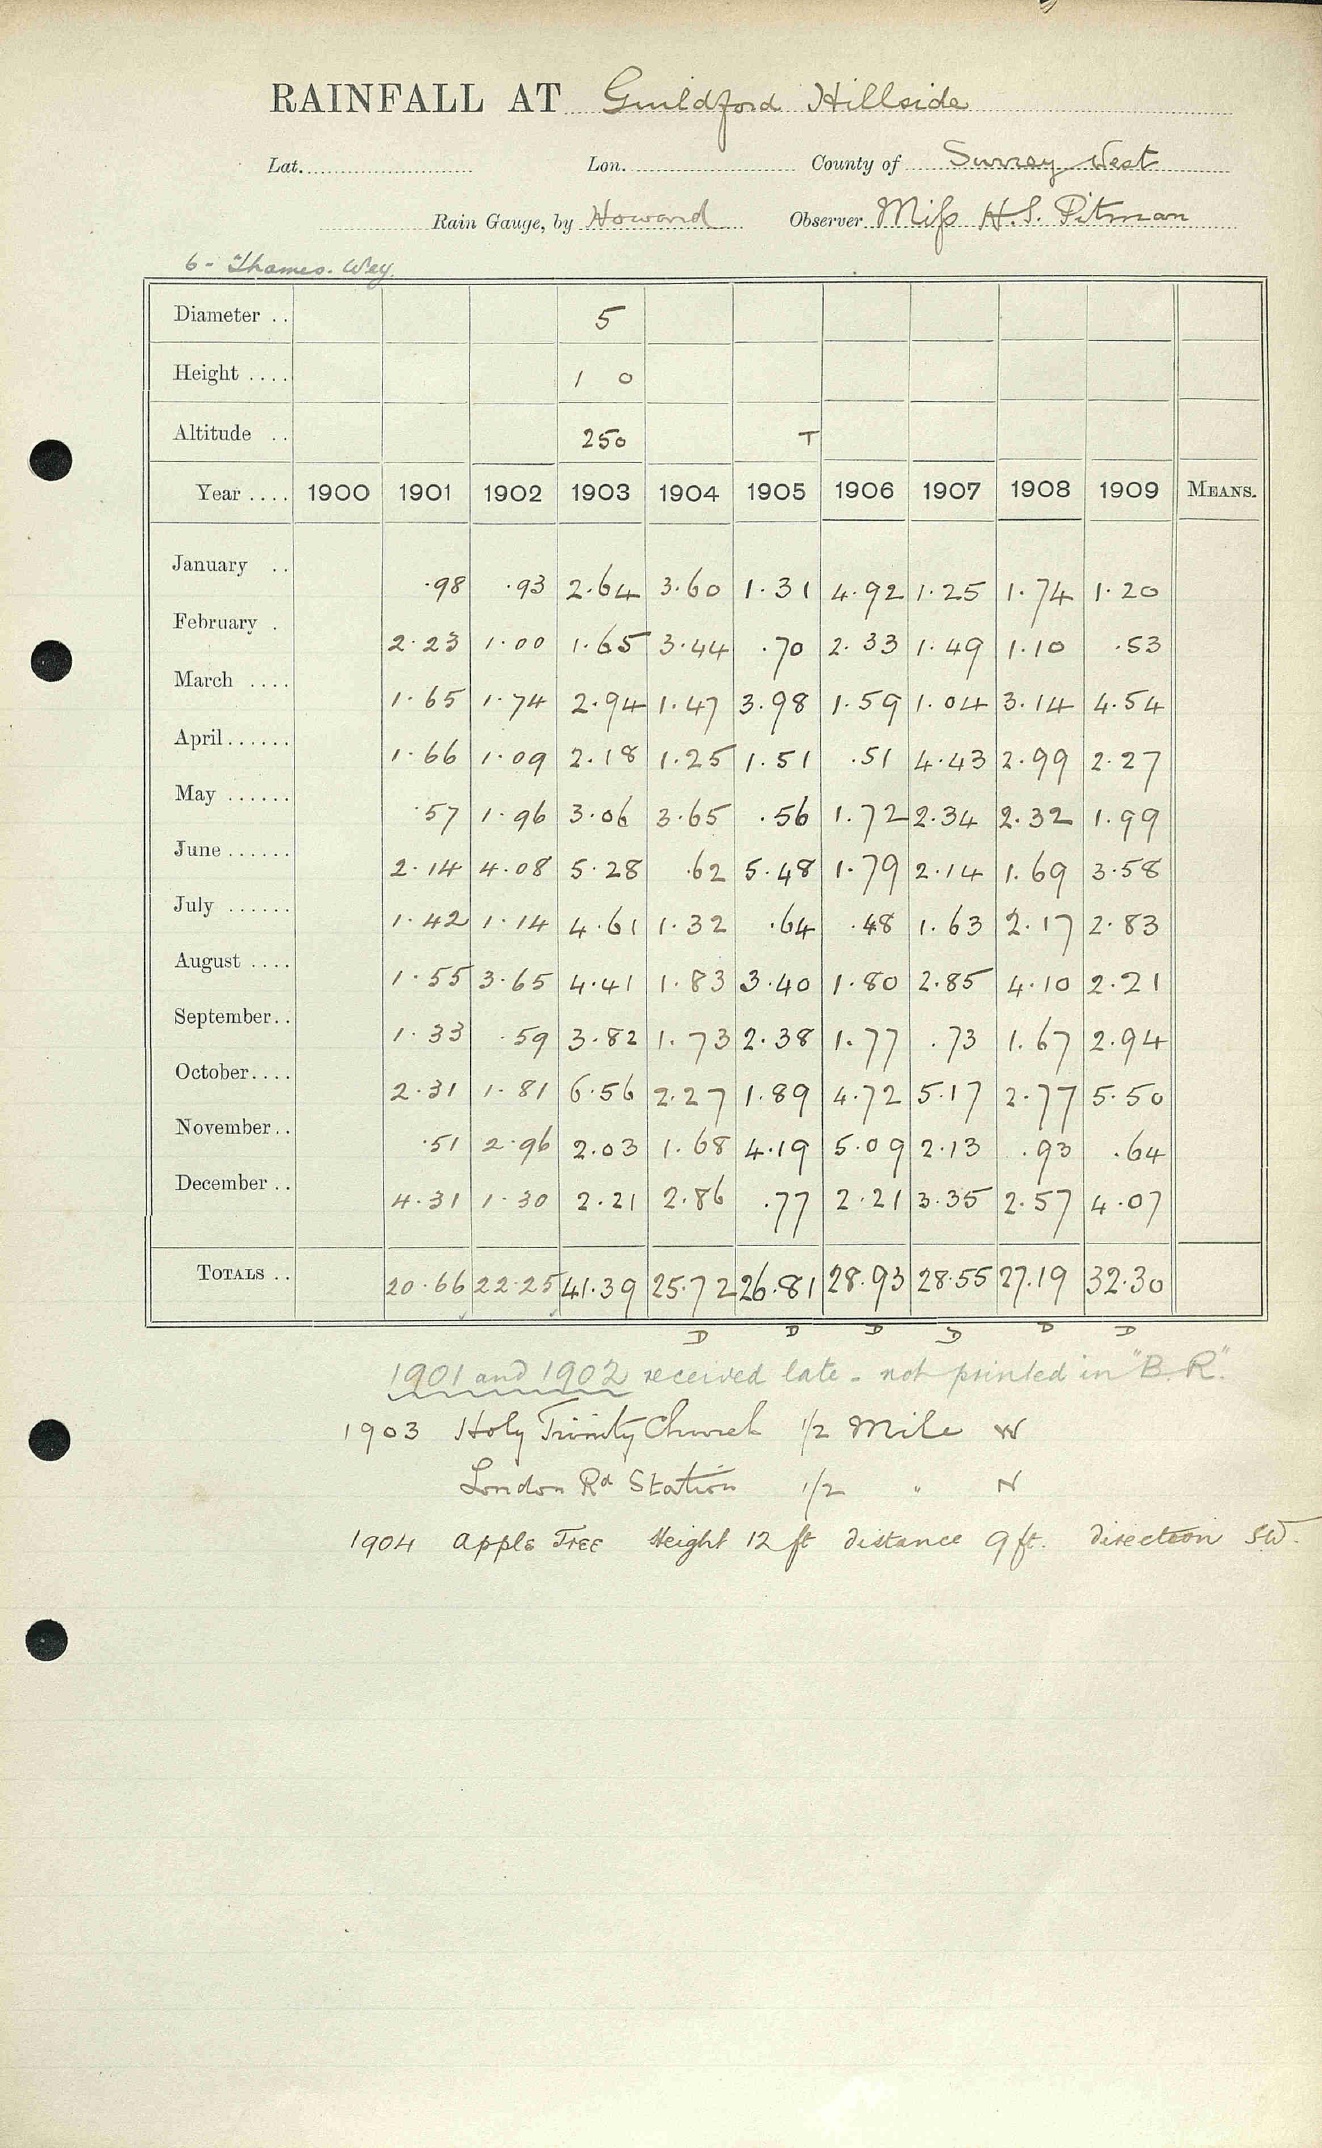 RAINFALL AT Guildford Hillside
Lat. Lon. County of Surrey West
Rain Gauge, by Howard Observer Miss H.S. Pitman
6 - Thames. Wey.
Diameter .. 5
Height .... 1 0
Altitude .. 250 T
Year .... 1900 1901 1902 1903 1904 1905 1906 1907 1908 1909 MEANS.
January .. .98 .93 2.64 3.60 1.31 4.92 1.25 1.74 1.20
February . 2.23 1.00 1.65 3.44 .70 2.33 1.49 1.10 .53
March .... 1.65 1.74 2.94 1.47 3.98 1.59 1.04 3.14 4.54
April...... 1.66 1.09 2.18 1.25 1.51 .51 4.43 2.99 2.27
May ...... .57 1.96 3.06 3.65 .56 1.72 2.34 2.32 1.99
June...... 2.14 4.08 5.28 .62 5.48 1.79 2.14 1.69 3.58
July ...... 1.42 1.14 4.61 1.32 .64 .48 1.63 2.17 2.83
August .... 1.55 3.65 4.41 1.83 3.40 1.80 2.85 4.10 2.21
September.. 1.33 .59 3.82 1.73 2.38 1.77 .73 1.67 2.94
October.... 2.31 1.81 6.56 2.27 1.89 4.72 5.17 2.77 5.50
November.. .51 2.96 2.03 1.68 4.19 5.09 2.13 .93 .64
December .. 4.31 1.30 2.21 2.86 .77 2.21 3.35 2.57 4.07
TOTALS .. 20.66 22.25 41.39 25.72 26.81 28.93 28.55 27.19 32.30
D D D D D D
1901 and 1902 received late - not printed in "B.R."
1903 Holy Trinity Church 1/2 Mile W
London Rd Station 1/2 " N
1904 Apple Tree Height 12 ft distance 9 ft. direction SW.